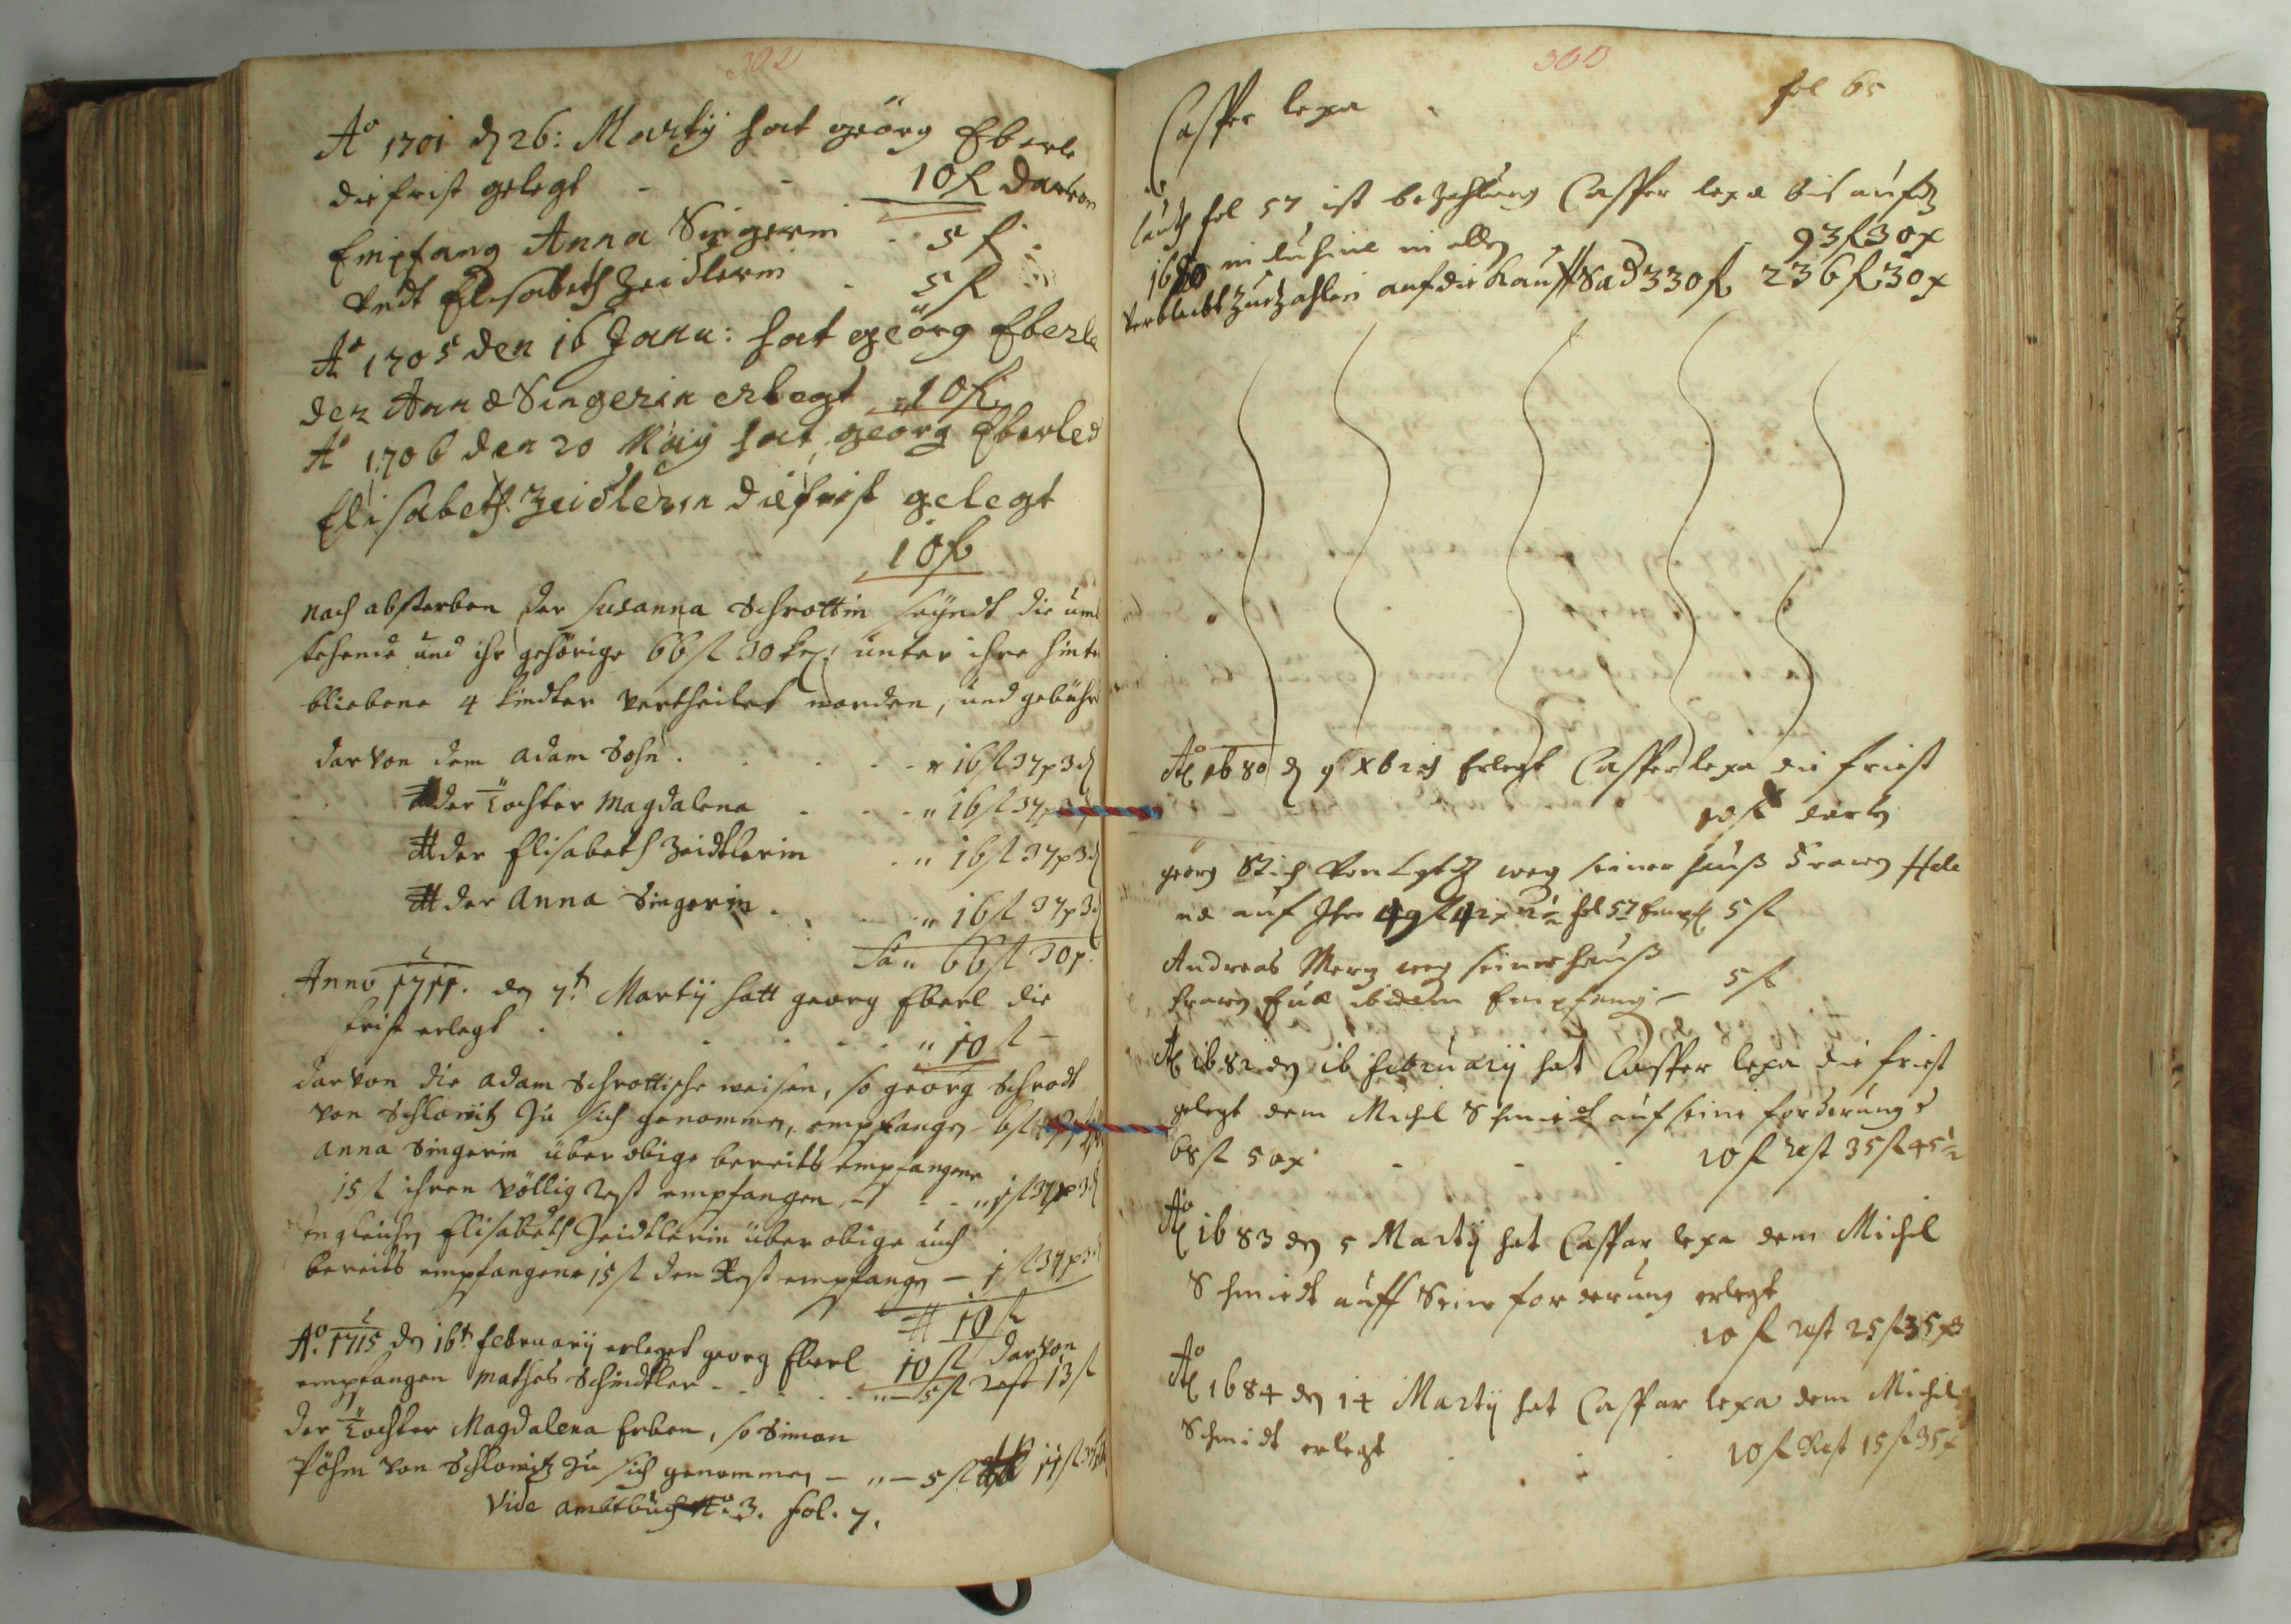 302
Ao 1701 d 26: Martÿ hat geörg Eberle
die frist gelegt - - 10 fl darvon
Empfang Anna Singerin - 5 fl.
vndt Elisabeth Zeidlerin . 5 fl
Ao 1705 den 16 Janu: hat geörg Eberle
der Anna Singerin erlegt 10 fl
Ao 1706 den 20 Maÿ hat geörg Eberle d
Elisabeth Zeidlerin die frist gelegt
10 fl
nach absterben der Susanna Schrottin seÿndt die umb
stehende und ihr gehörige 66 fl 30 kr: unter ihre hinter
bliebene 4 kindter vertheilet worden, und gebühr
darvon dem Adam Sohn . . . 16 fl 37 x 3 d
der Töchter Magdalena . . . " 16 fl 37 x 3 d
der Elisabeth Zeidtlerin . " 16 fl 37 x 3 d
der Anna Singerin . . . " 16 fl 37 x 3 d
Sa " 66 fl 30 x.
Anno 1711. den 7t Martÿ hatt georg Eberl die
frist erlegt . . . . " 10 fl -
darvon die Adam Schrottische weisen, so georg Schrodt
von Schlowitz zu sich genommen, empfangen 6 fl
Anna Singerin über obige bereits empfangene
15 fl ihren völlig rest empfangen - " 1 fl 37 x 3 d
Ingleichen Elisabeth Zeidtlerin über obige auch
bereits empfangene 15 fl den Rest empfangen - 1 fl 37 x 3 d
10 fl
Ao. 1715 den 16t february erleget georg Eberl 10 fl darvon
empfangen Mathes Schindtler - - - " - 5 fl rest 13 fl
der Töchter Magdalena Erben, so Simon
Pöhm von Schlowitz zu sich genommen - " - 5 fl 11 fl 37
Vide ambtbuch No. 3. fol. 7.
303
fol 65
Casper lexa
lauth fol 57 ist bezahlung Casper lexa bis aufs
1680 93 fl 30 x
verbleibt zue zahlen auf die Kauff Sa 330 fl 236 fl 30 x
Ao 1680 d 9 Xbris Erlegt Casper lexa die friest
10 fl
geörg Stich von weg seiner hauß Frawen Hele
na auf Ihre 49 fl 42 x fol 57 Empf 5 fl
Andreas Merz weg seiner hauß
frawen Eua ibidem Empfang - 5 fl
Ao 1682 den 16 february hat Casper lexa die friest
gelegt dem Michel Schmiedt auf seine forderung
68 fl 50 x - - - 10 fl rest 35 fl 45
Ao 1683 den 5 Martÿ hat Caspar lexa dem Michel
Schmiedt auff Seine forderung erlegt
10 fl rest 25 fl 35 x
Ao 1684 den 14 Martÿ hat Caspar lexa dem Michel
Schmidt erlegt . . . 10 fl Rest 15 fl 35 x